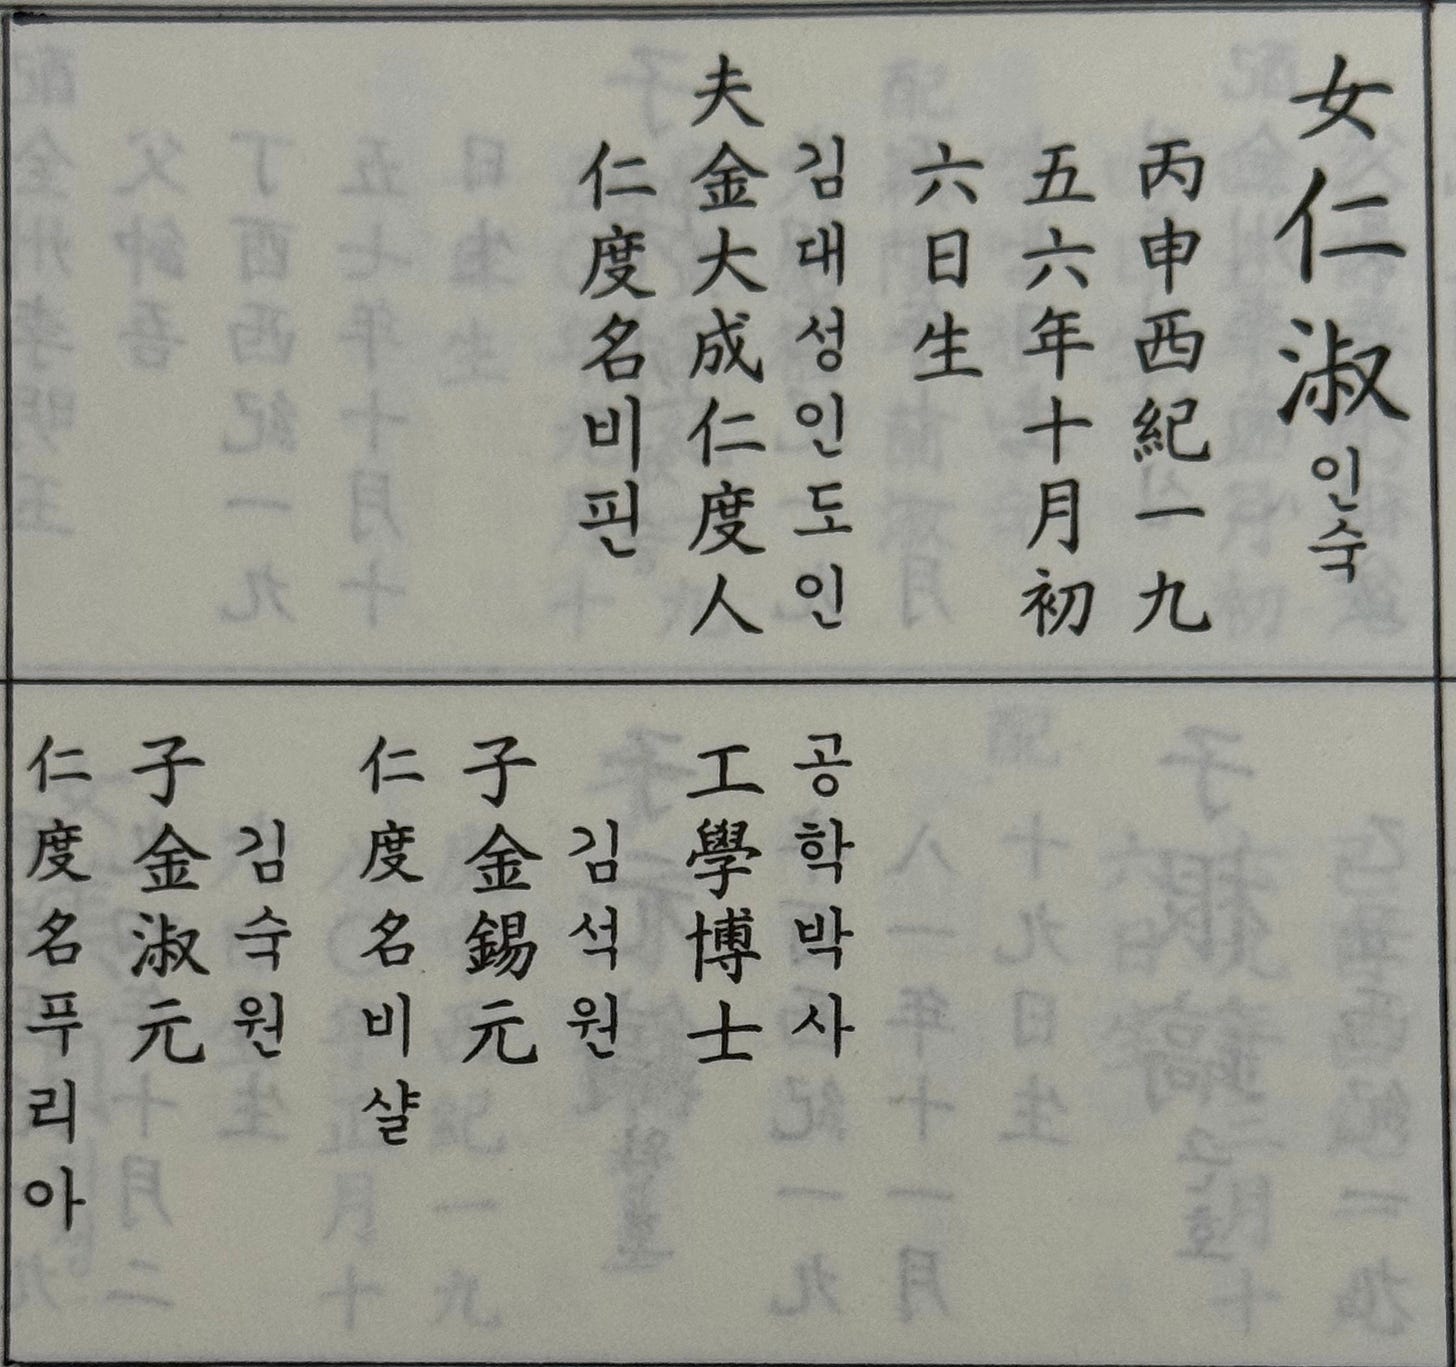 女仁淑인숙
丙申西紀一九
五六年十月初
六日生
김대성인도인
夫金大成仁度人
仁度名비핀
공학박사
工學博士
김석원
子金錫元
仁度名비샬
김숙원
子金淑元
仁度名푸리아